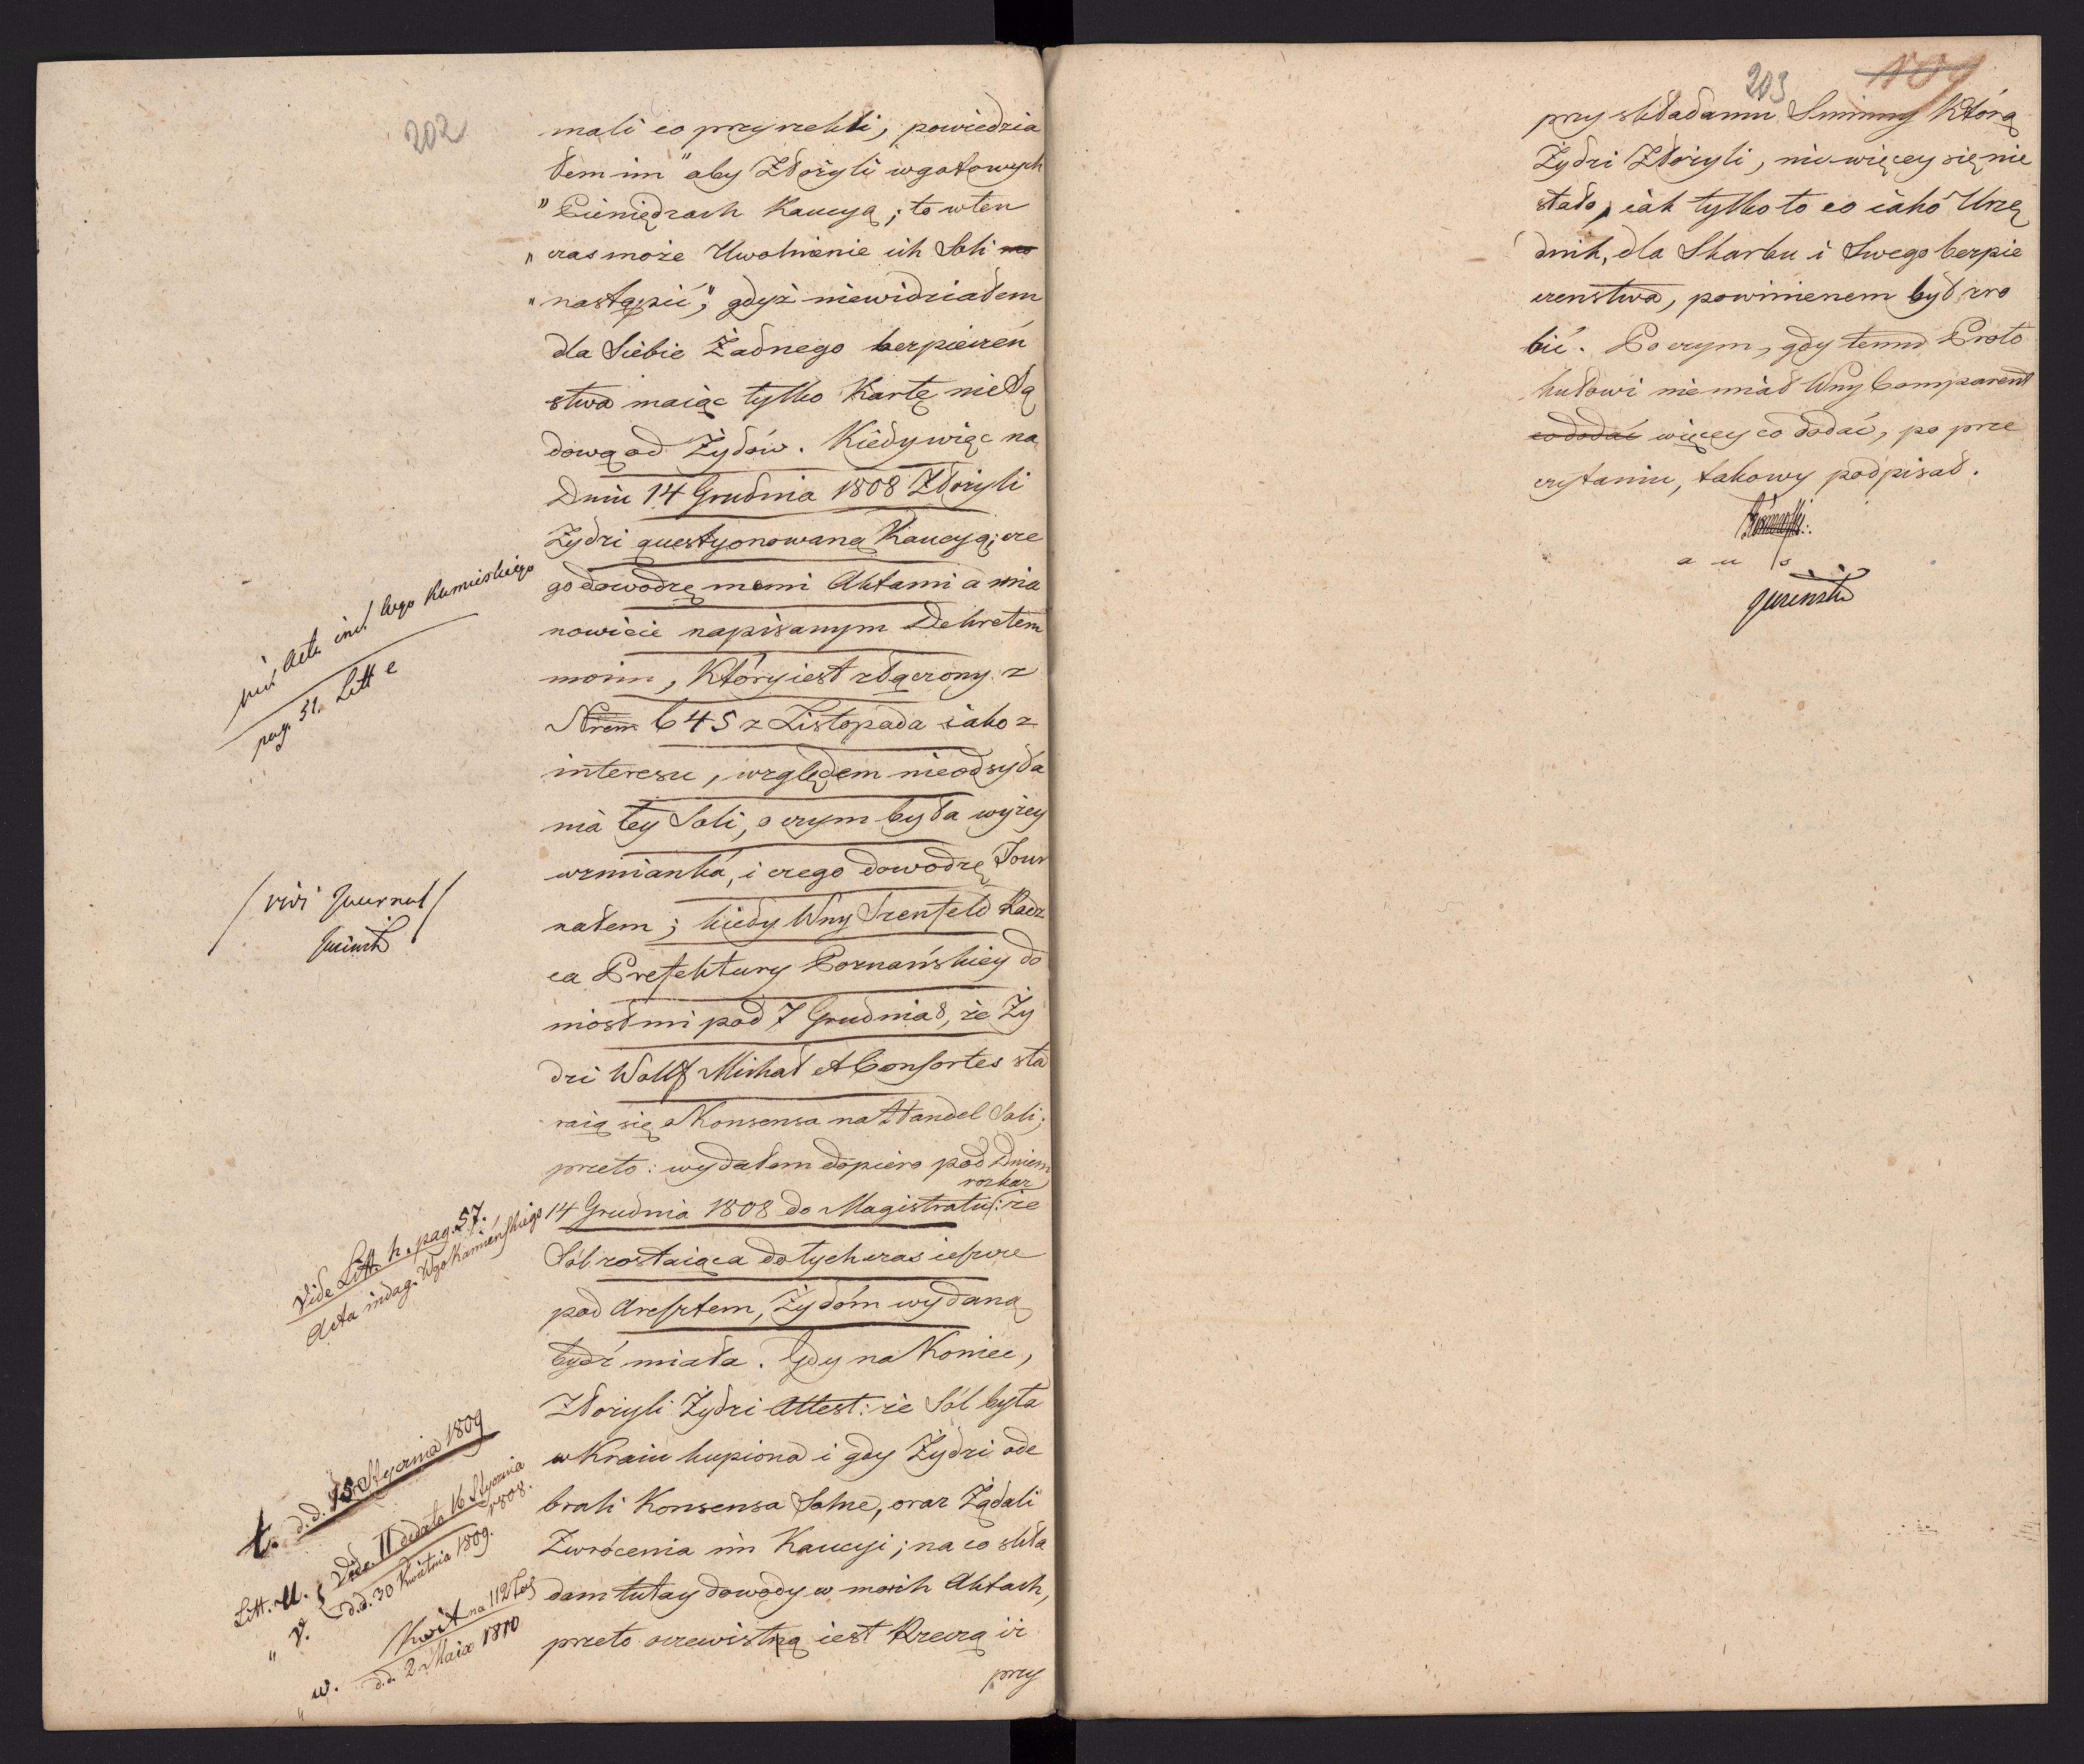 202
mali co przyrzekli, powiedzia
łem im "aby Złożyli w gotowych
"Pieniędzach Kaucyą; to w ten
"czas może Uwolnienie ich Soli
"nastąpić," gdyż niewidziałem
dla Siebie Żadnego bezpieczeń
stwa maiąc tylko Kartę niełą
dową od Żydów. Kiedy więc na
Dniu 14 Grudnia 1808 Złożyli
Żydzi questyonowaną Kaucyą; cze
go dowodzę memi Aktami a mia
nowicie napisanym Dekretem
moim, Który iest złączony z
Nrem 645 z Listopada iako z
interesu, względem nieodsyła
nia tey Soli, o czym była wyżey
wzmianka, i czego dowodzę Jour
nałem; kiedy Wny Szenfeld Radz
ca Prefektury Poznańskiey do
niosł mi pod 7 Grudnia 8, że Ży
dzi Wolff Michał et Consortes sta
raią się o Konsensa na Handel Soli;
przeto: wydałem dopiero pod Dniem
rozkaz
14 Grudnia 1808 do Magistratu: że
Sól zostaiąca dotychczas ieszcze
pod Aresztem, Żydóm wydaną
bydź miała. Gdy na Koniec,
Złożyli Żydzi Attest: że Sól była
w Kraiu kupiona i gdy Żydzi ode
brali Konsensa Solne, oraz Żądali
Zwrócenia im Kaucyi; na co skła
dam tutay dowody w moich Aktach,
przeto oczewistną iest Rzeczą iż
przy
Acta ind. Wgo Kamieńskiego
pag. 51. Litt e
/ vidi Journal /
Vide Litt. h. pag. 57.
Acta indag. Wgo Kamieńskiego
t. d.d. 15 Stycznia 1809
Litt. U. Vide II de dato 16 Stycznia
1808.
" V. d.d. 30 Kwietnia 1809.
" w. Kwit na 112 Tal
d.d. 2 Maia 1810
203
przy składaniu Summy Którą
Żydzi Złożyli, nic więcey się nie
stało, iak tylko to co iako Urzę
dnik, dla Skarbu i Swego bezpie
czenstwa, powinienem był zro
bić. Po czym, gdy temu Proto
kułowi nie miał Wny Comparent
co dodać więcey co dodać, po prze
czytaniu, takowy podpisał.
a u s